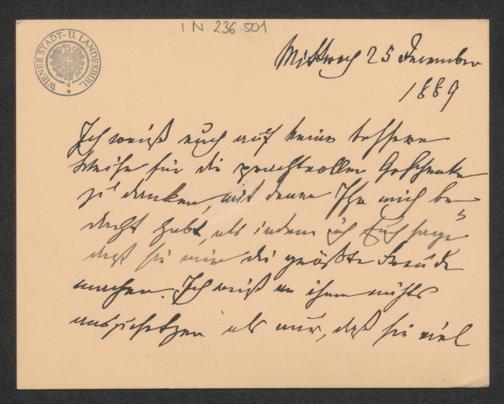 I.N. 236.501
WIENER STADT- U. LANDESBIBL.
Mittwoch 25 Dezember
1889
Ich weiß euch auf keine bessere
Weise für die prachtvollen Geschenke
zu danken, mit denen Ihr mich be-
dacht habt, als indem ich Euch sage
daß sie mir die größte Freude
machen. Ich weiß an ihnen nichts
auszusetzen als nur, daß sie viel